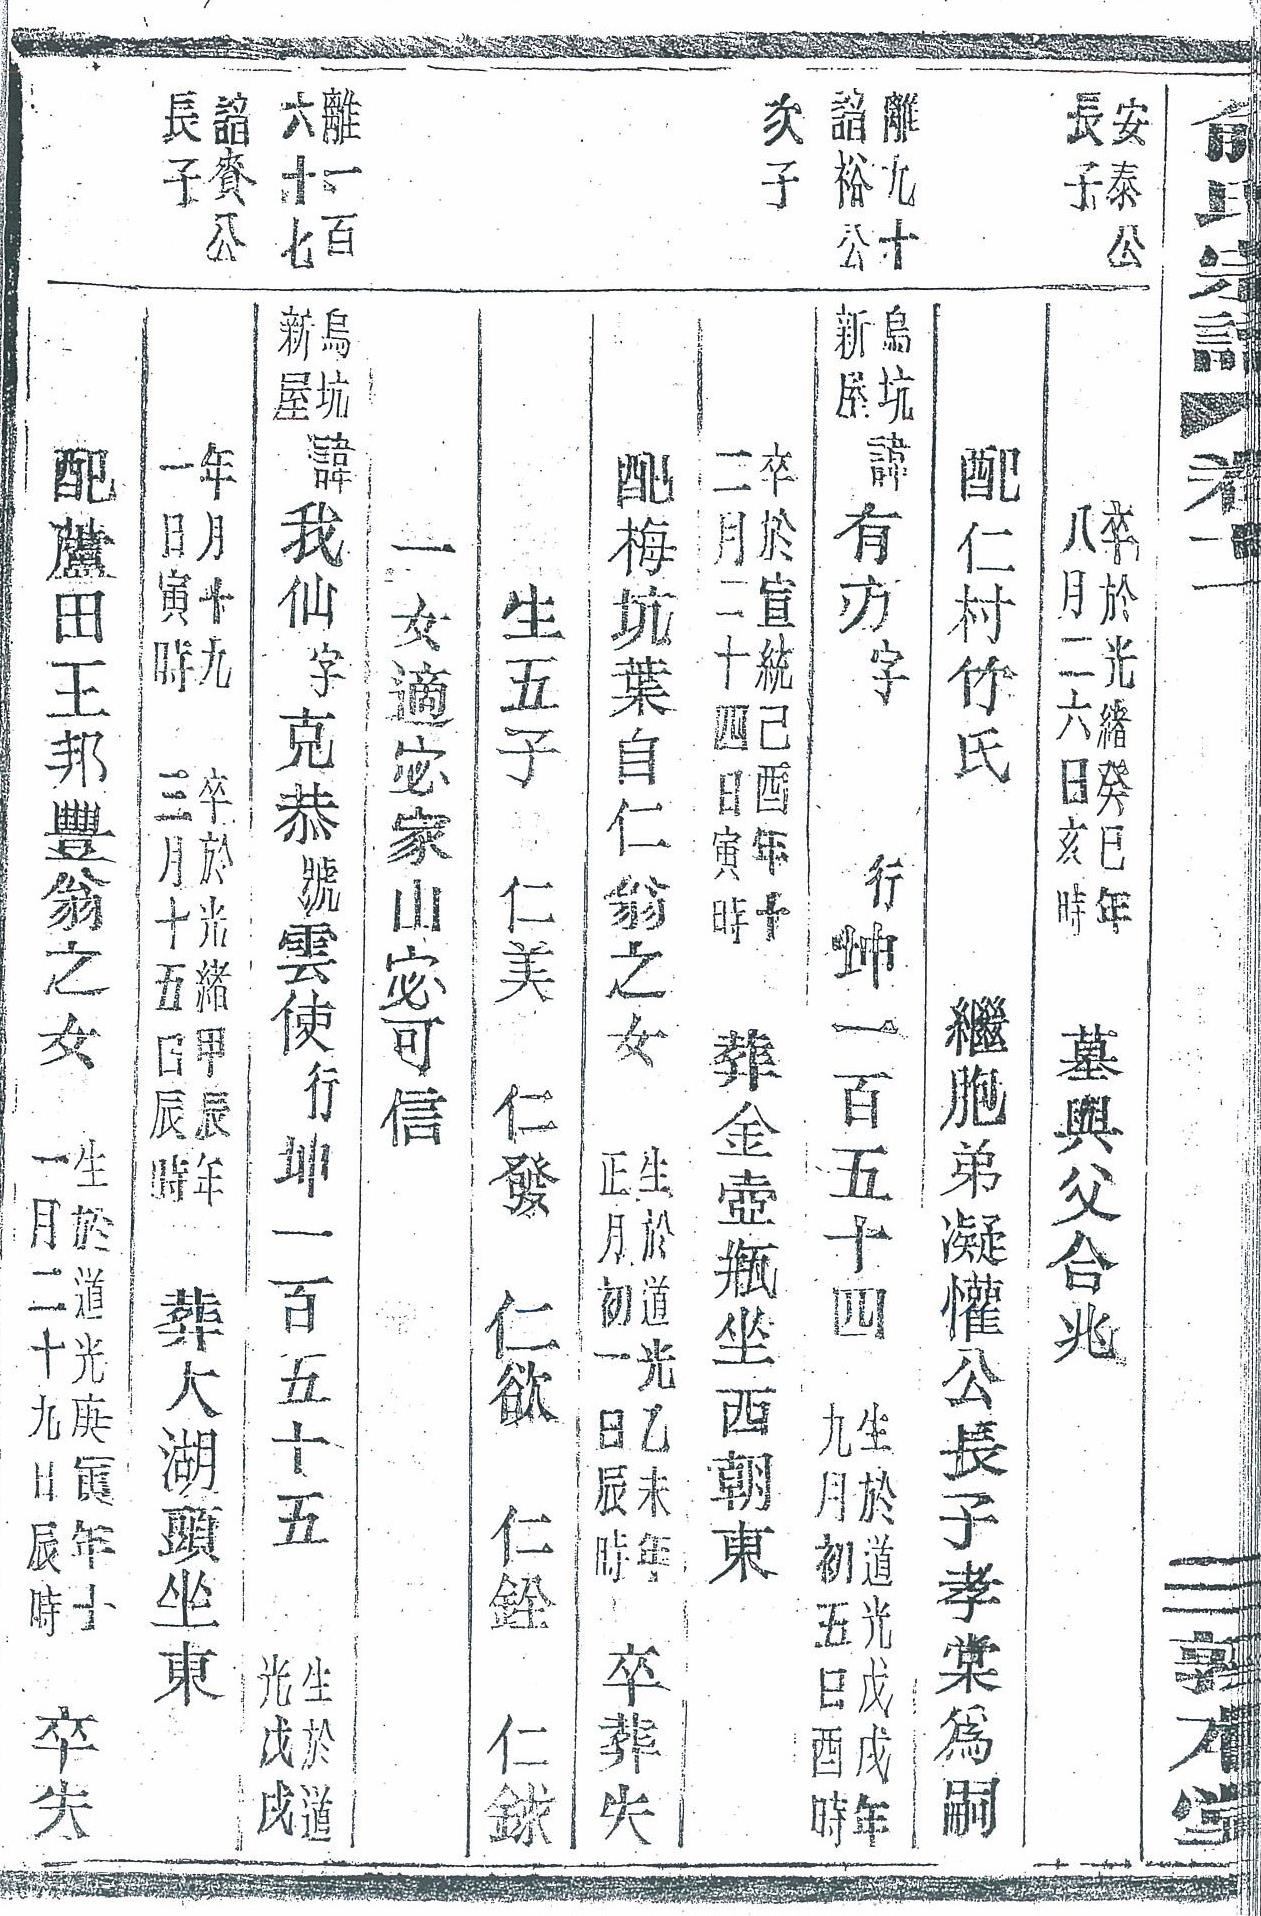 俞氏宗譜
卷十一
三
敦本堂
安泰公
長子
卒於光緒癸巳年
八月二六日亥時
墓與父合兆
配仁村竹氏
繼胞弟凝懽公長子孝棠爲嗣
離九十
諮裕公
次子
烏坑
新屋
諱有方字
行坤一百五十四
生於道光戊戌年
九月初五日酉時
卒於宣統己酉年十
二月二十四日寅時
葬金壺瓶坐西朝東
配梅坑葉自仁翁之女
生於道光乙未年
正月初一日辰時
卒葬失
生五子
仁美
仁發
仁欲
仁銓
仁銶
一女適宓家山宓可信
離一百
六十七
諮賚公
長子
烏坑
新屋
諱我仙字克恭號雲使行坤一百五十五
生於道
光戊戌
年月十九
一日寅時
卒於光緒甲辰年
三月十五日辰時
葬大湖頭坐東
配蘆田王邦豐翁之女
生於道光庚寅年十
一月二十九日辰時
卒失